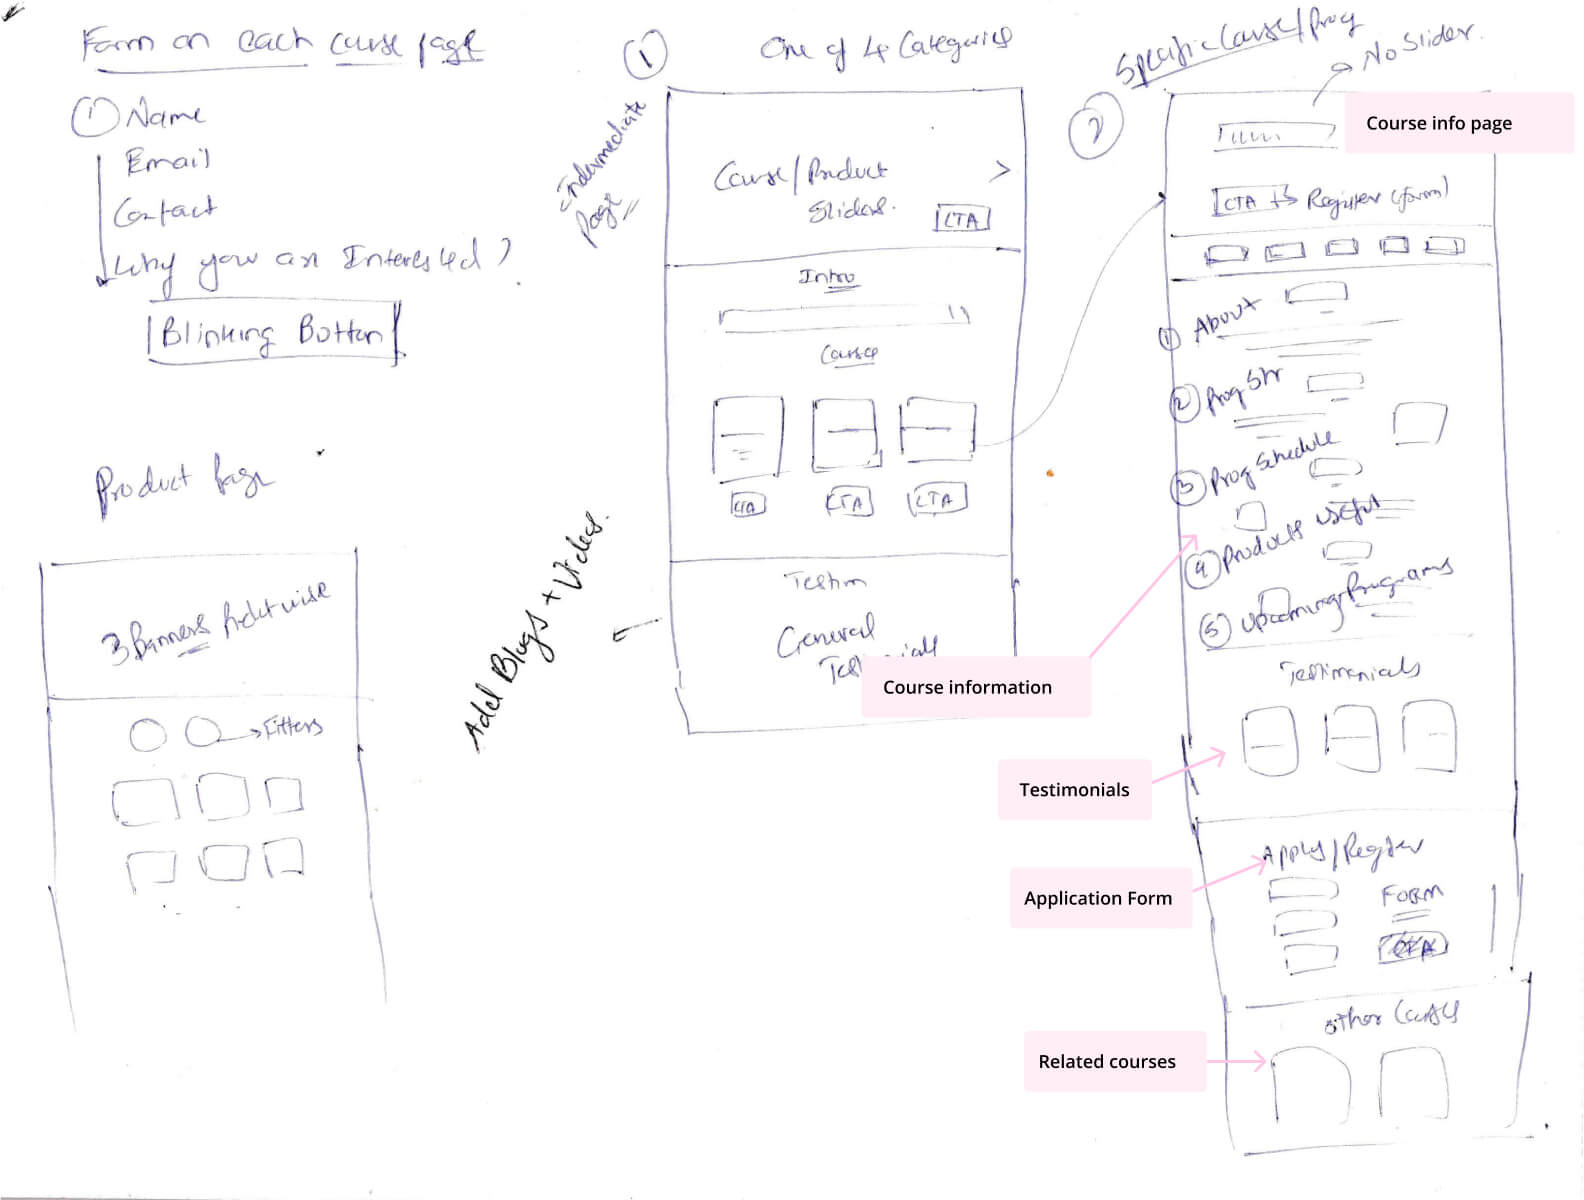 Form on each course page
① Name
Email
Contact
Why you are Interested ?
Blinking Button
Product Page
3 Banners Productwise
Filters
Add Blogs + Videos.
① One of 4 Categories
Intermediate
Page
Course/Product
Sliders.
CTA
Intro
Course
CTA CTA CTA
Testim
General
Course information
② Specific Course/Prog
No Slider.
Course info page
CTA Register (form)
① About
② Prog Str
③ Prog Schedule
④ Products useful
⑤ Upcoming Programs
Testimonials
Testimonials
Apply/Register
Application Form
FORM
CTA
Other Courses
Related courses